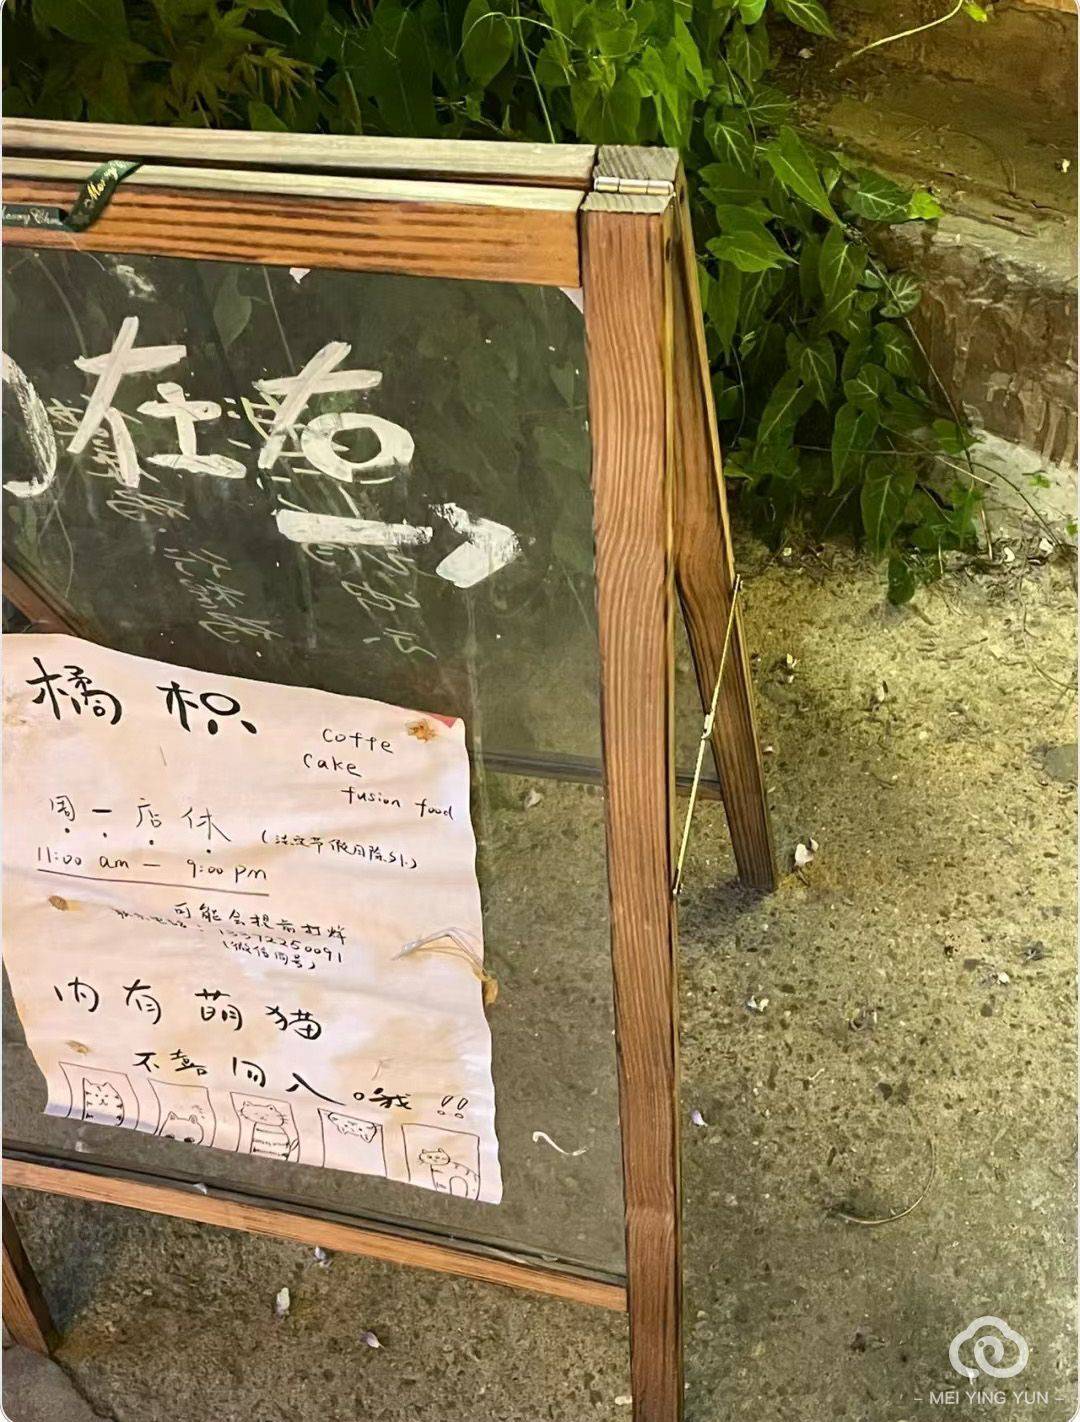 Merry
Merry Chri
在右
→
橘 枳
Coffe
Cake
fusion food
周一店休
(法定节假日除外)
11:00 am — 9:00 pm
可能会提前打烊
(微信同号)
内有萌猫
不喜勿入哦!!
- MEI YING YUN -